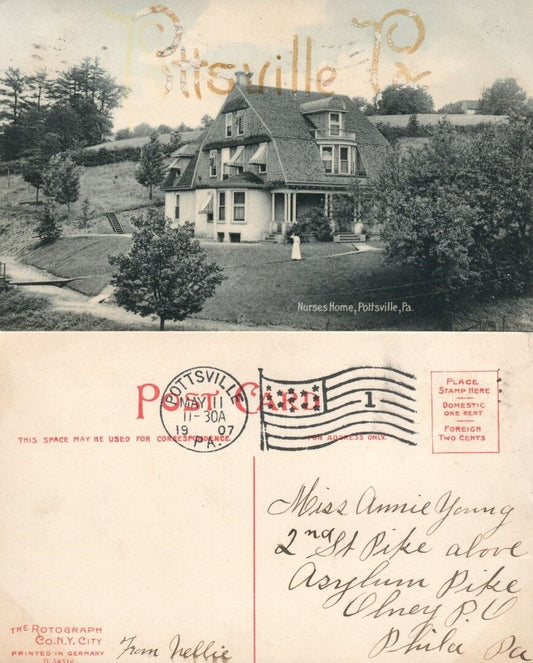 Pottsville Pa
Nurses Home, Pottsville, Pa.
POST CARD
POTTSVILLE
MAY 11
11-30A
19 07
PA.
1
PLACE
STAMP HERE
DOMESTIC
ONE CENT
FOREIGN
TWO CENTS
THIS SPACE MAY BE USED FOR CORRESPONDENCE
FOR ADDRESS ONLY.
Miss Annie Young
2nd St Pike above
Asylum Pike
Olney P.O
Phila Pa
THE ROTOGRAPH
CO. N.Y. CITY
PRINTED IN GERMANY
From Nellie